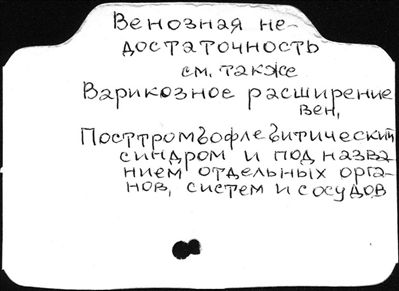 Венозная не-
достаточность
см. также
Варикозное расширение
вен,
Посттромбофлебитический
синдром и под назва-
нием отдельных орга-
нов, систем и сосудов